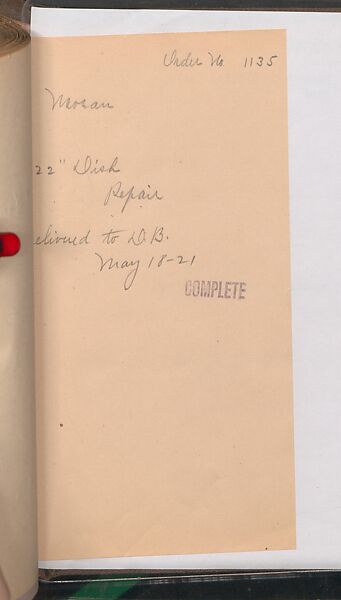 Order No. 1135
Moran
22" Dish
Repair
elivered to D.B.
May 18-21
COMPLETE